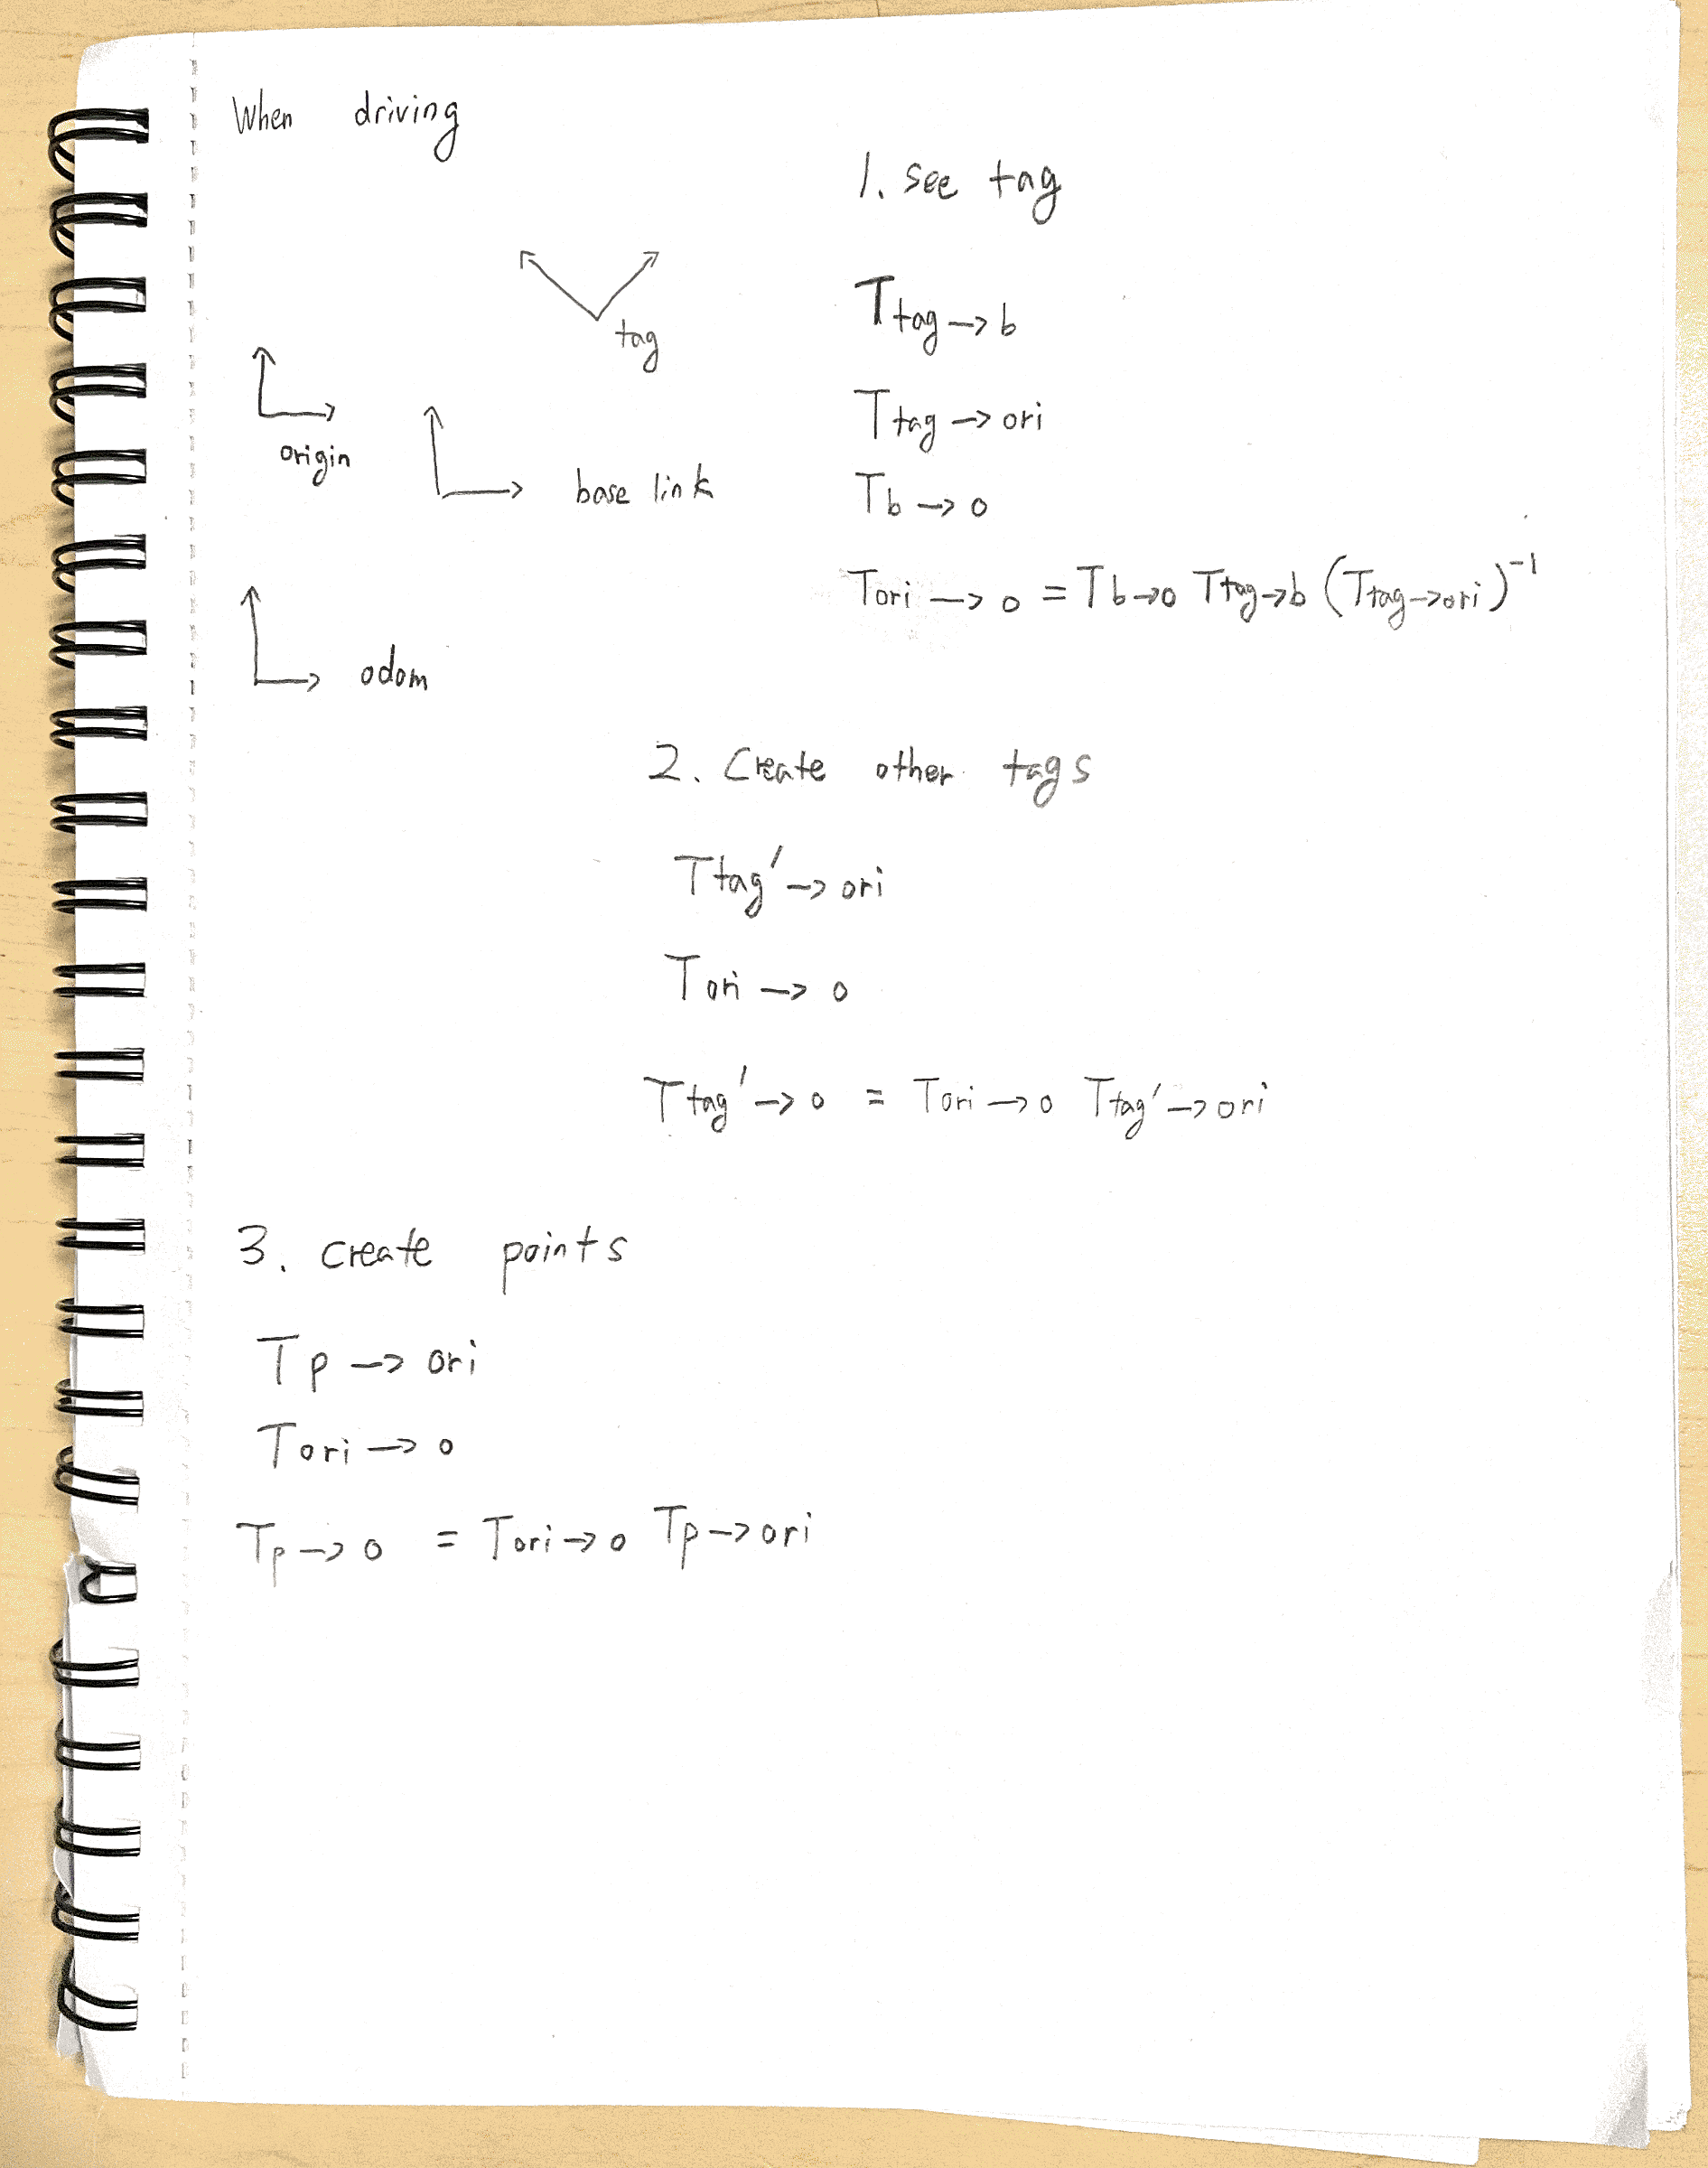 When driving
1. see tag
tag
origin
base link
odom
T tag → b
T tag → ori
T b → o
T ori → o = T b→o T tag→b (T tag→ori)⁻¹
2. Create other tags
T tag' → ori
T ori → o
T tag' → o = T ori → o T tag' → ori
3. create points
T p → ori
T ori → o
T p → o = T ori → o T p → ori